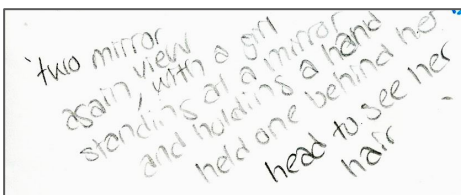 'two mirror
again, view
, with a girl
standing at a mirror
and holding a hand
held one behind her
head to see her
hair